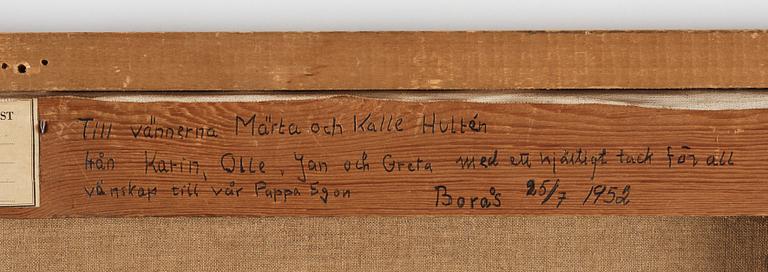 ST
Till vännerna Märta och Kalle Hultén
från Karin, Olle, Jan och Greta med ett hjärtligt tack för all
vänskap till vår Pappa Egon Borås 25/7 1952